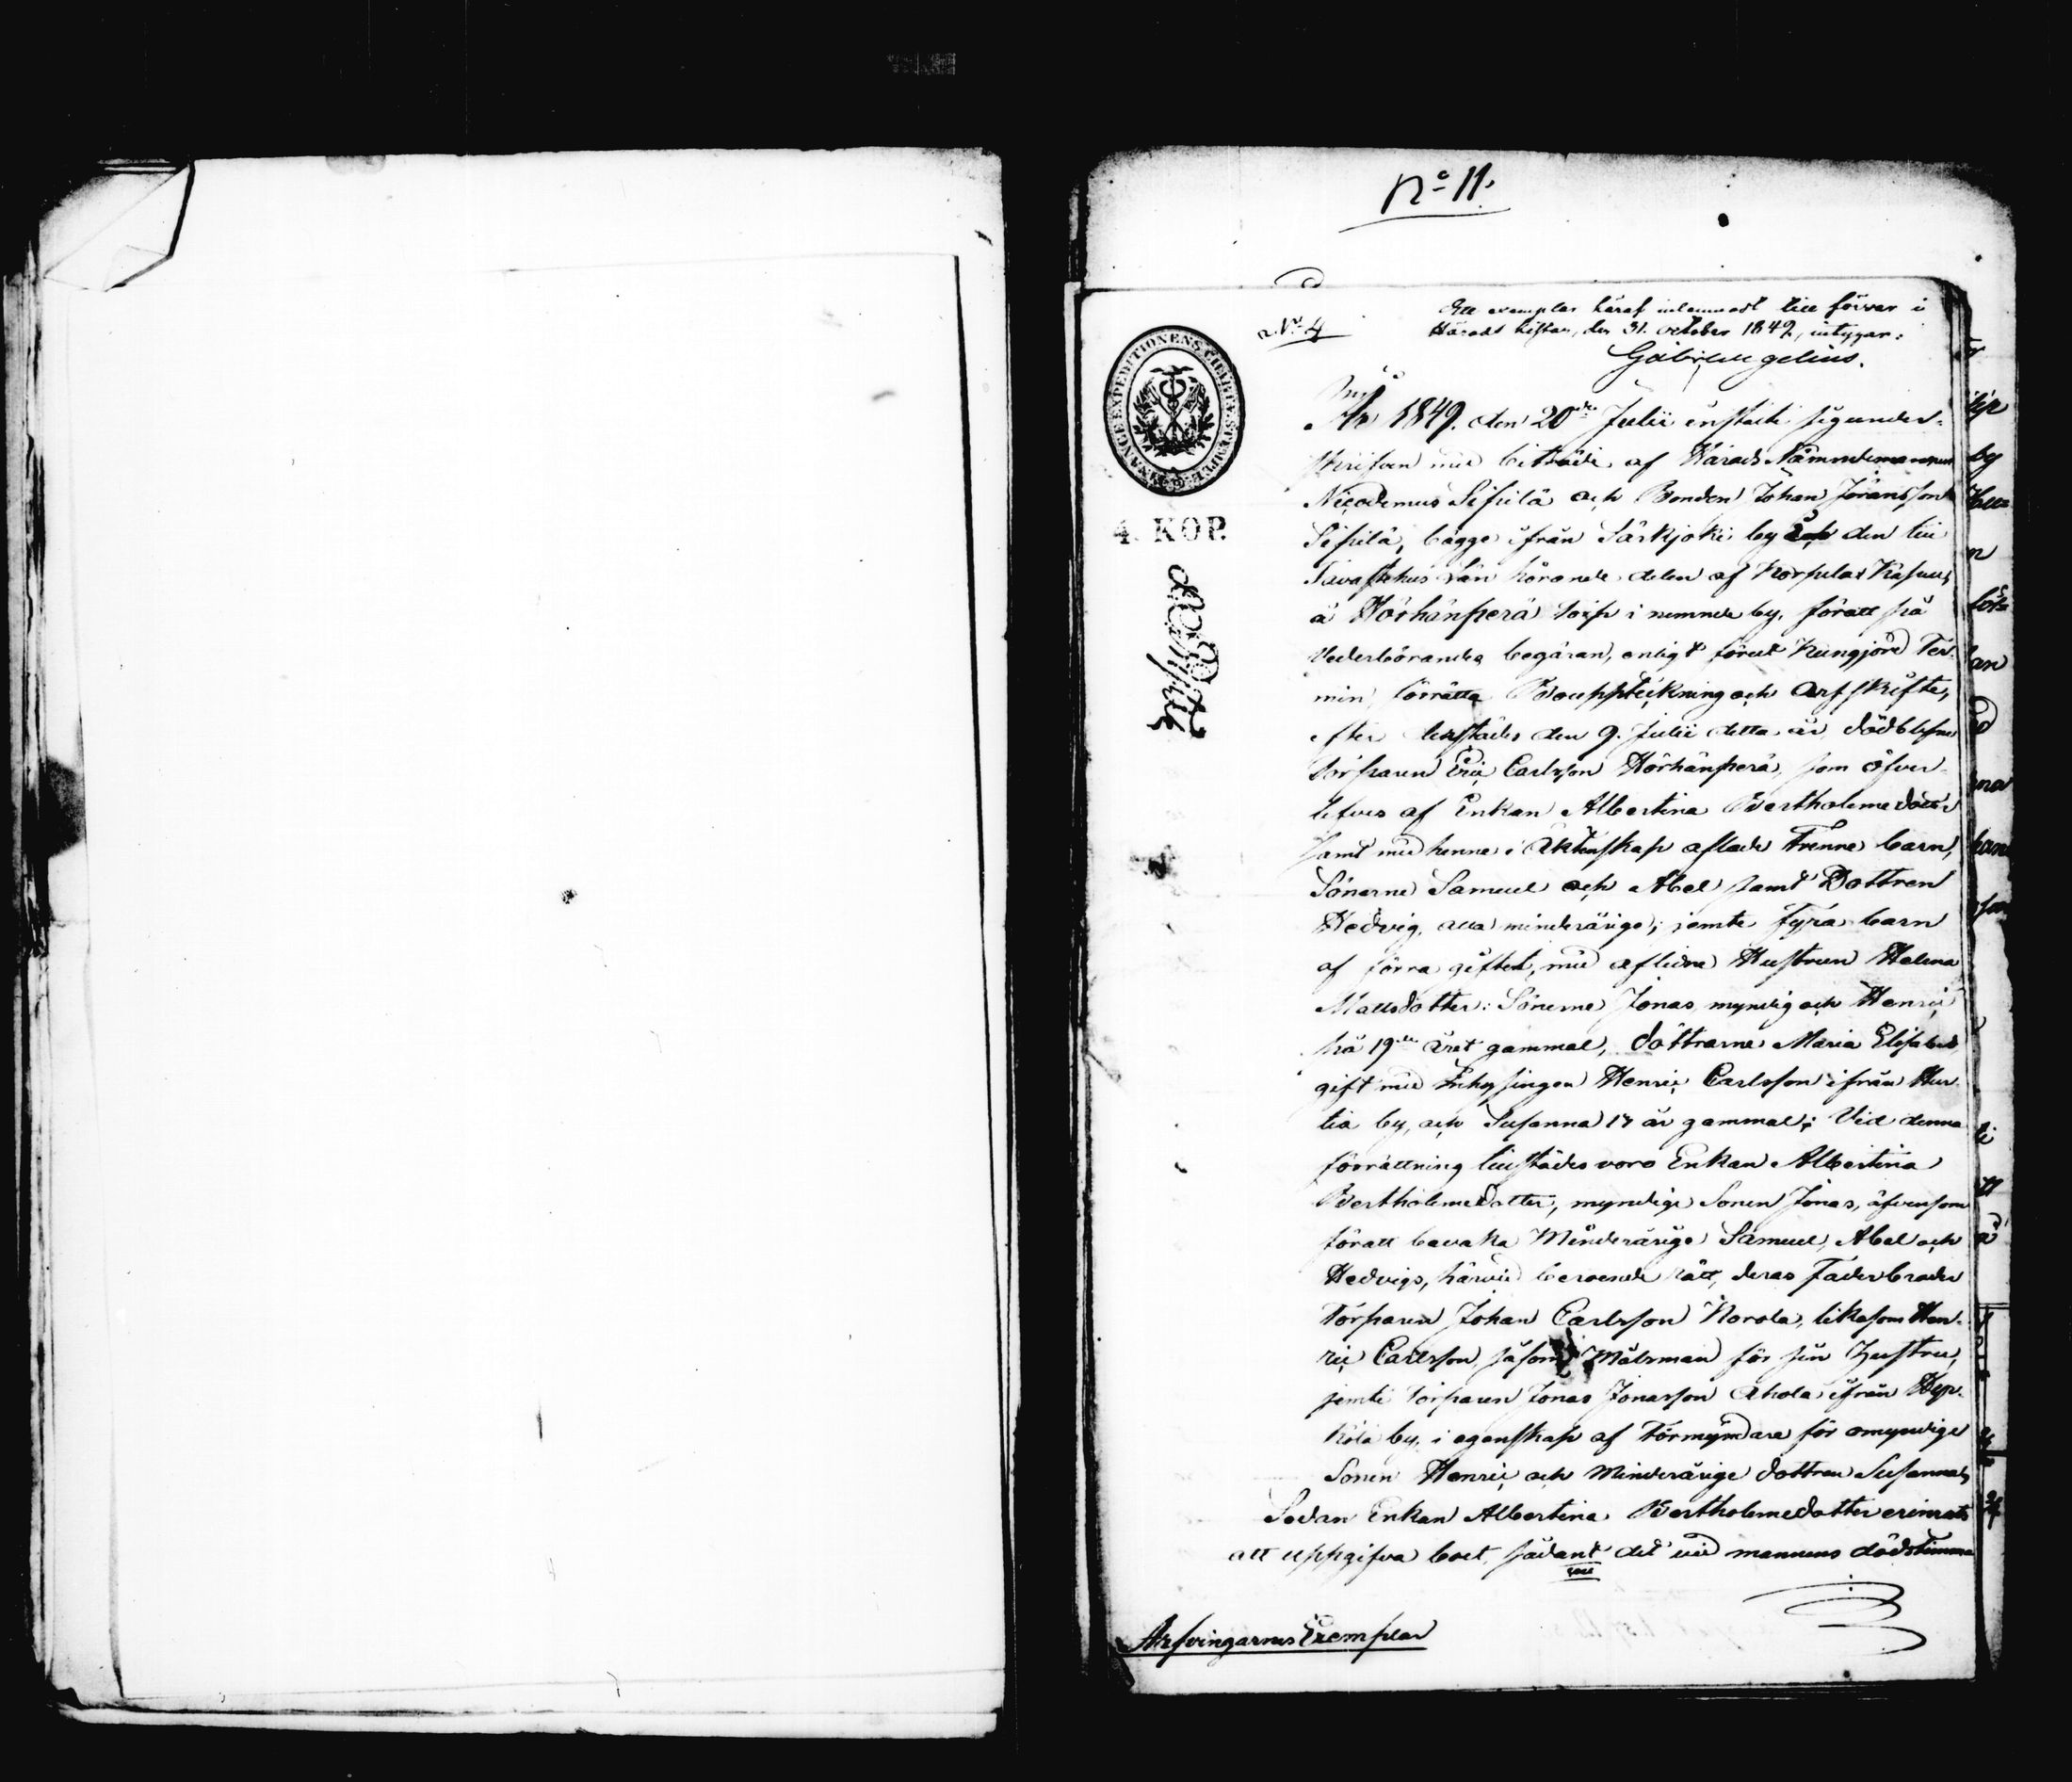 No 11.
No 4
Ett exemplar häraf inlemnadt till förvar i
Härads kistan, den 31. october 1849, intygar:
FINANCE EXPEDITIONENS CHARTÆ STEMPEL
4. KOP.
År 1849. den 20de Julii instälte sig under-
skrifven med biträde af Härads Nämndemannen
Nicodemus Sipilä och Bonden Johan Jöransson
Sipilä, bägge ifrån Särkjoki by och den till
Tavastehus Län hörande delen af
å Hörhänperä torp i nemnde by, föratt på
Vederbörandes begäran, enligt förut kungjord Ter-
min, förrätta Bouppteckning och Arfskifte,
efter härstädes den 9. Julii detta år dödblefne
Torparen Eric Carlsson Hörhänperä, som öfver-
lefves af Enkan Albertina Bertholomedotter
samt med henne i Äktenskap aflade Trenne barn,
Sönerne Samuel och Abel samt Dottren
Hedvig, alla minderårige; jemte fyra barn
af förra giftet, med aflidna Hustrun Helena
Mattsdotter: Sönerne Jonas, myndig och Henric
på 19de året gammal, döttrarne Maria Elisabet
gift med Inhysingen Henric Carlsson ifrån Hur-
tia by, och Susanna 17 år gammal; Vid denna
förrättning tillstädes voro Enkan Albertina
Bertholomedotter, myndige Sonen Jonas, äfvensom
föratt bevaka Minderårige Samuel, Abel och
Hedvigs, härvid beroende rätt, deras Faderbroder
Torparen Johan Carlsson Norola, likasom Hen-
ric Carlsson, såsom Målsman för sin Hustru,
jemte Torparen Jonas Jonasson Ahola ifrån Hyp-
by, i egenskap af Förmyndare för omyndige
Sonen Henric och Minderårige dottren Susanna,
Sedan Enkan Albertina Bertholomedotter erinrats
att uppgifva boet, sådant det vid mannens dödstimma
Arfvingarnes Exemplar